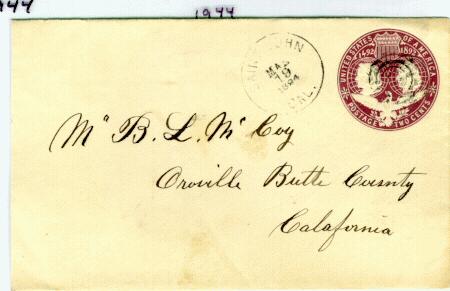 1944
1944
SAINT JOHN
MAR
19
1894
CAL.
UNITED STATES OF AMERICA
1492 1892
POSTAGE TWO CENTS
Mr B. L. Mc Coy
Oroville Butte County
Calafornia